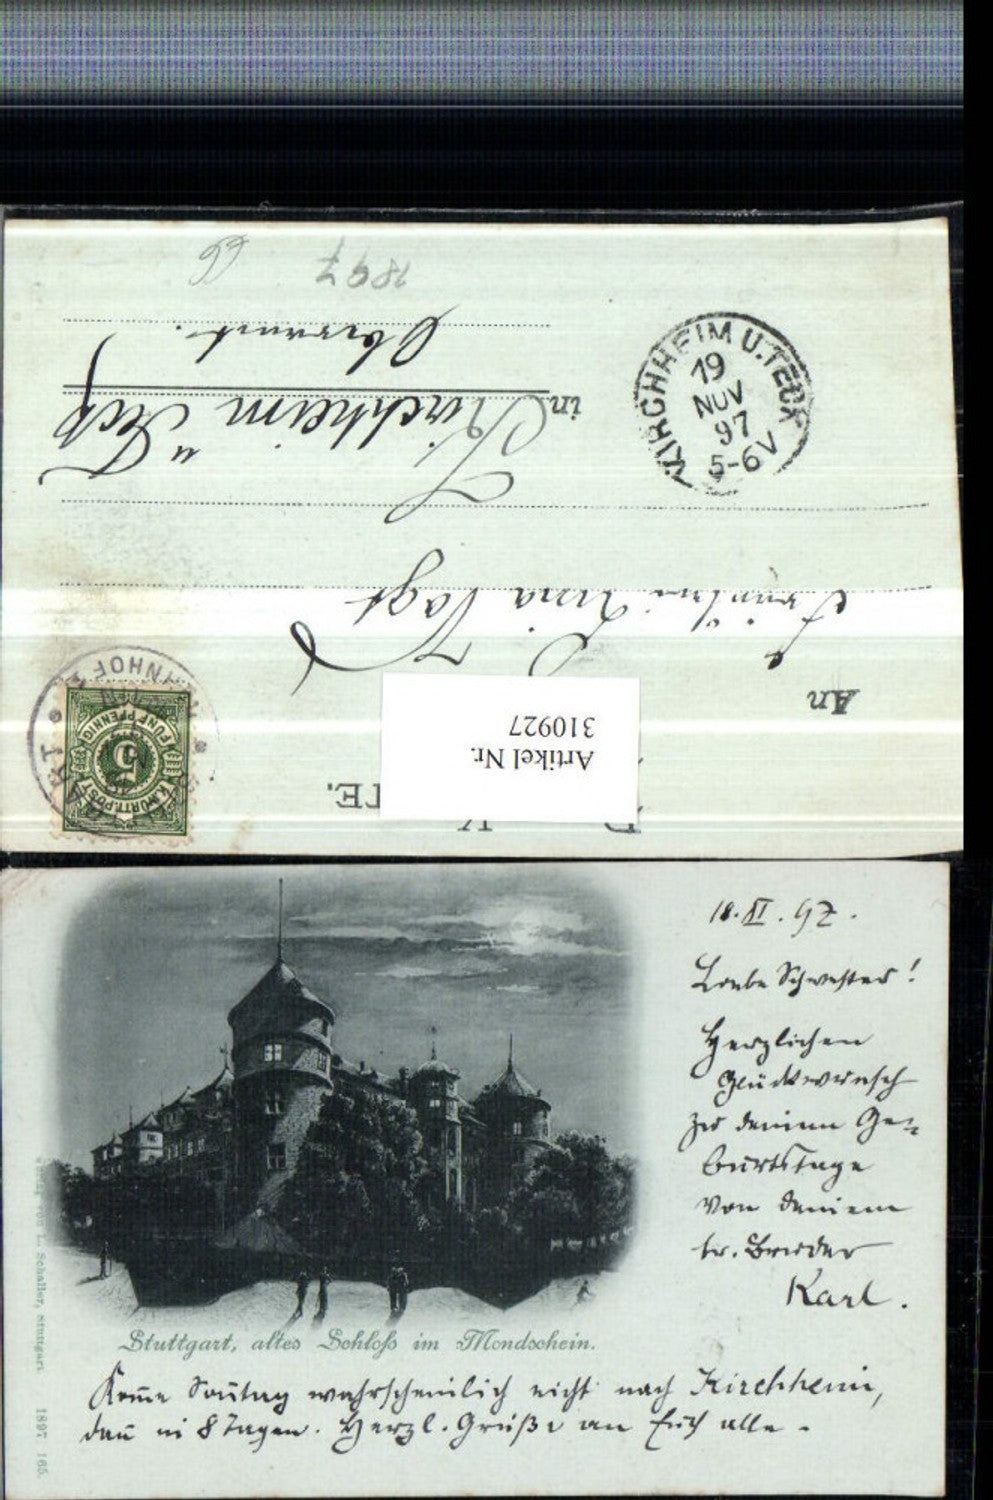 1897
66
Oberamt.
in Kirchheim u Teck
Fräulein Lina Vogt
An
KIRCHHEIM U. TECK
19
NOV
97
5-6 V
K. WÜRTT. POST
5
FÜNF PFENNIG
Artikel Nr.
310927
TE.
18. XI. 97.
Liebe Schwester!
Herzlichen
Glückwunsch
zu deinem Ge-
burtstage
von deinem
tr. Bruder
Karl.
Stuttgart, altes Schloß im Mondschein.
Kom̄e Son̄tag wahrscheinlich nicht nach Kirchheim,
dan̄ in 8 Tagen. Herzl. Grüße an Euch alle.
Verlag von L. Schaller, Stuttgart. 1897 165.